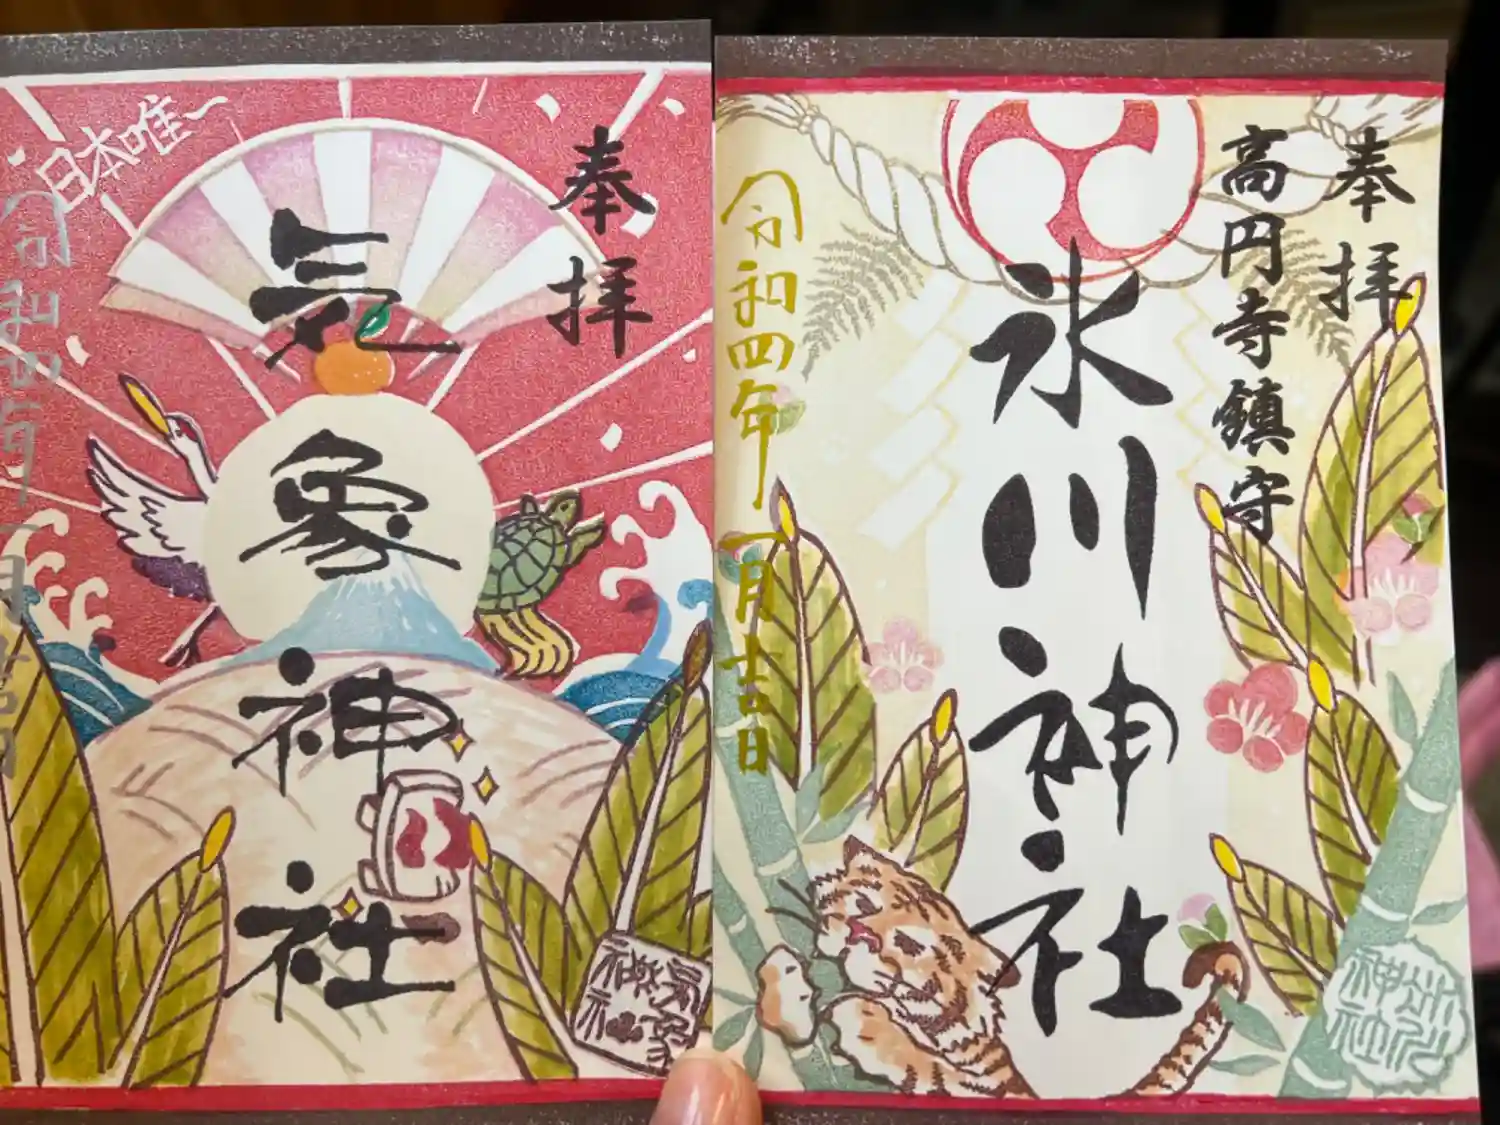 奉拝
気象神社
日本唯一
令和四年一月吉日
気象神社
奉拝
高円寺鎮守
氷川神社
令和四年一月吉日
氷川神社